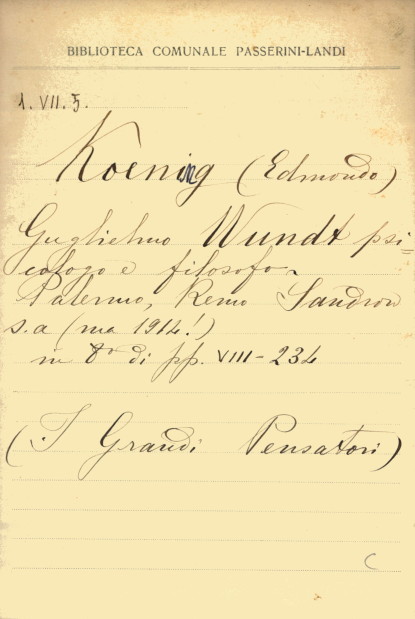 BIBLIOTECA COMUNALE PASSERINI-LANDI
1. VII. 5.
Koening (Edmondo)
Guglielmo Wundt psi=
cologo e filosofo -
Palermo, Remo Sandron
s.a (ma 1914!)
in 8º di pp. VIII - 234
(I Grandi Pensatori)
C